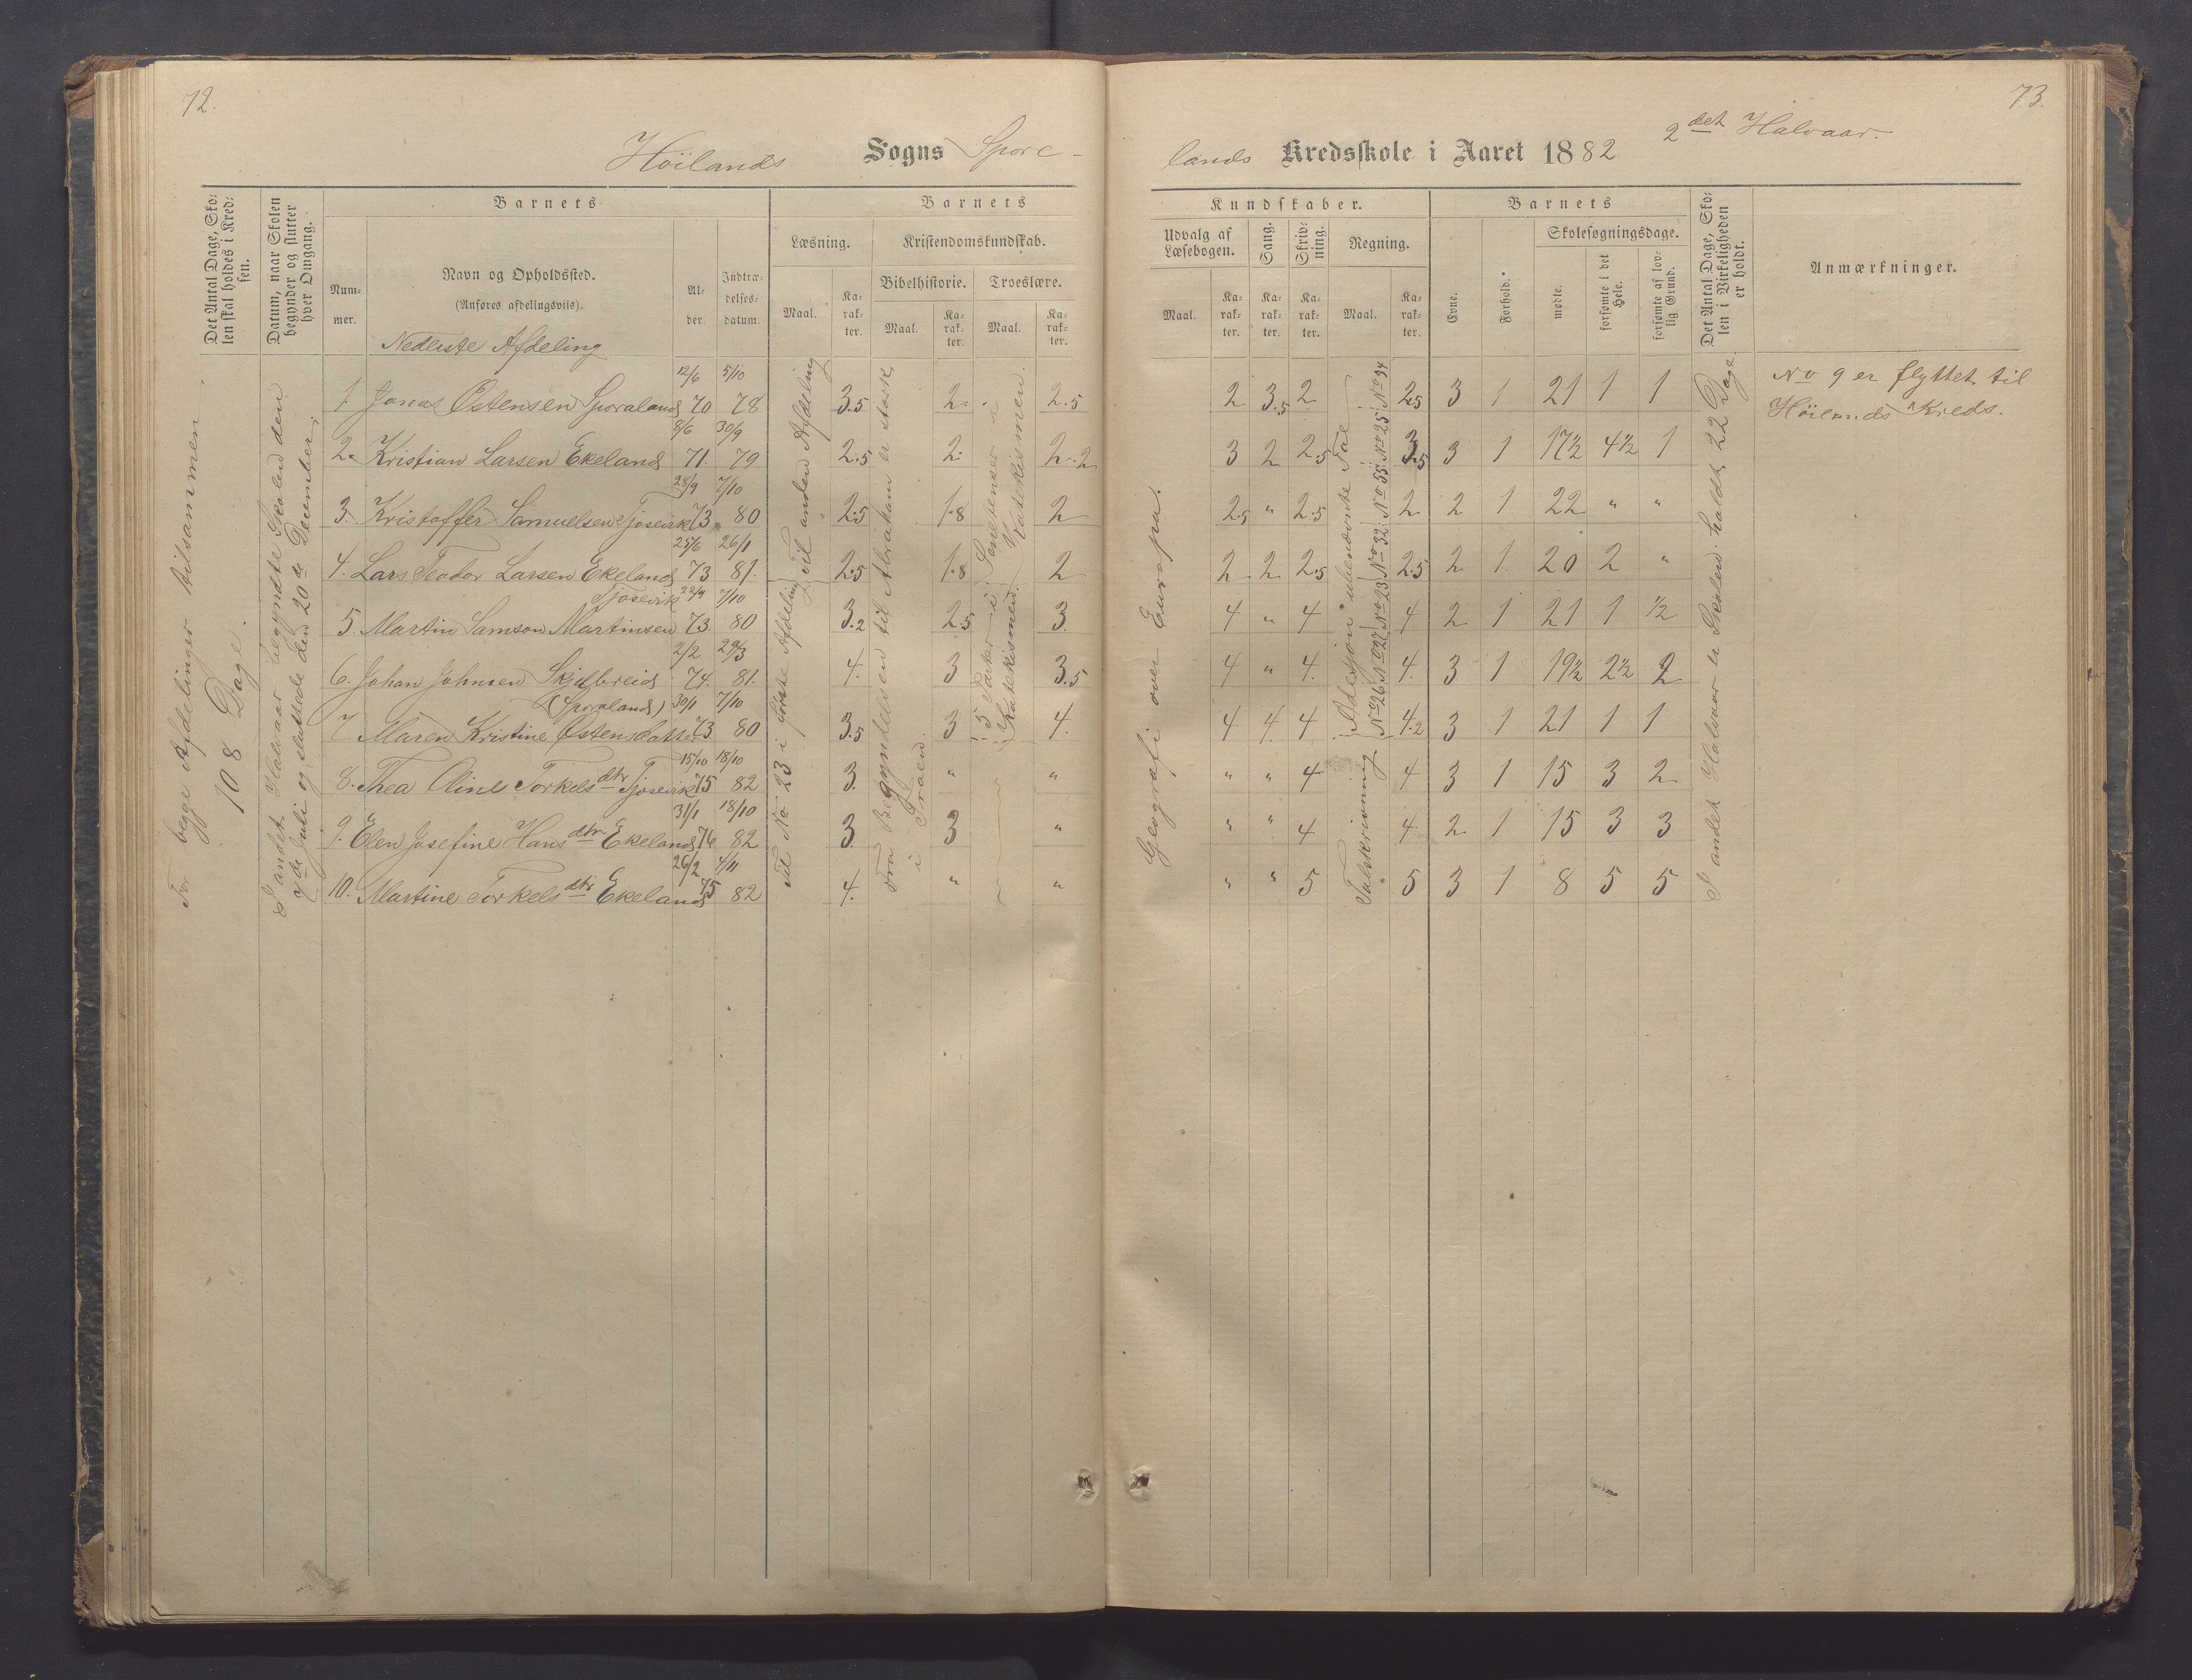 72.
Höilands Sogns Spore-
Det Antal Dage, Sko-
len skal holdes i Kred-
sen.
Datum, naar Skolen
begynder og slutter
hver Omgang.
Barnets
Num-
mer.
Navn og Opholdssted.
(Anføres afdelingsviis).
Al-
der.
Indtræ-
delses-
datum.
Barnets
Læsning.
Kristendomskundskab.
Maal.
Ka-
rak-
ter.
Bibelhistorie.
Troeslære.
Maal.
Ka-
rak-
ter.
Maal.
Ka-
rak-
ter.
Nederste Afdeling
For begge Afdelinger tilsammen
108 Dage.
I andet Halvaar begyndte Skolen den
7de Juli og sluttede den 20de December.
Til No 23 i første Afdeling
til anden Afdeling
Fra Begyndelsen til Abraham er stærk
i Troen.
5 Parter i Senetenser
Katekismen. Katekismen.
12/6 5/10
1 Jonas Østensen Sporaland 70 78 3.5 2. 2.5
8/6 30/9
2. Kristian Larsen Ekeland 71. 79 2.5 2. 2.2
28/9 7/10
3. Kristoffer Samuelsen Tjosevik 73 80 2.5 1.8 2
25/6 26/1
4. Lars Teodor Larsen Ekeland 73 81. 2.5 1.8 2
Tjosevik 22/4 7/10
5. Martin Samson Martinsen 73. 80 3.2 2.5 3.
2/2 29/3
6. Johan Johnsen Skjilbreid 74. 81. 4. 3 3.5
(Sporaland) 30/1 7/10
7. Maren Kristine Østensdatter 73. 80 3.5 3 4.
15/10 18/10
8. Thea Oline Torkelsdtr Tjosevik 75 82 3. " "
31/1 18/10
9. Elen Josefine Hansdtr Ekeland 76 82 3. 3 "
26/2 4/11
10. Martine Torkelsdtr Ekeland 75 82 4. " "
73.
lands Kredsskole i Aaret 1882 2det Halvaar.
Kundskaber.
Udvalg af
Læsebogen.
Sang.
Skriv-
ning.
Regning.
Maal.
Ka-
rak-
ter.
Ka-
rak-
ter.
Ka-
rak-
ter.
Maal.
Ka-
rak-
ter.
Barnets
Evne.
Forhold.
Skolesøgningsdage.
mødte.
forsømte i det
Hele.
forsømte af lov-
lig Grund.
Det Antal Dage, Sko-
len i Virkeligheden
er holdt.
Anmærkninger.
Geografi over Europa.
Talskrivning
Addesjon ubenævnte Tal
I andet Halvaar er Skolen holdt 22 Dage.
No 9 er flyttet til
Höilands Kreds.
2 3.5 2 No 94 2.5 3 1 21 1 1
3 2 2.5 No 25 3.5 3 1 17½ 4½ 1
2.5 " 2.5 No 55 2 2 1 22 " "
2 2 2.5 No 32 2.5 2 1. 20 2 "
4 " 4 No 23 4 2 1 21 1 ½
4 " 4. No 27 4. 3 1 19½ 2½ 2
4 4. 4 No 26 4.2 3 1 21 1 1
" " 4 4 3 1 15 3 2
" " 4 4 2 1 15 3 3
" " 5 5 3 1 8 5 5